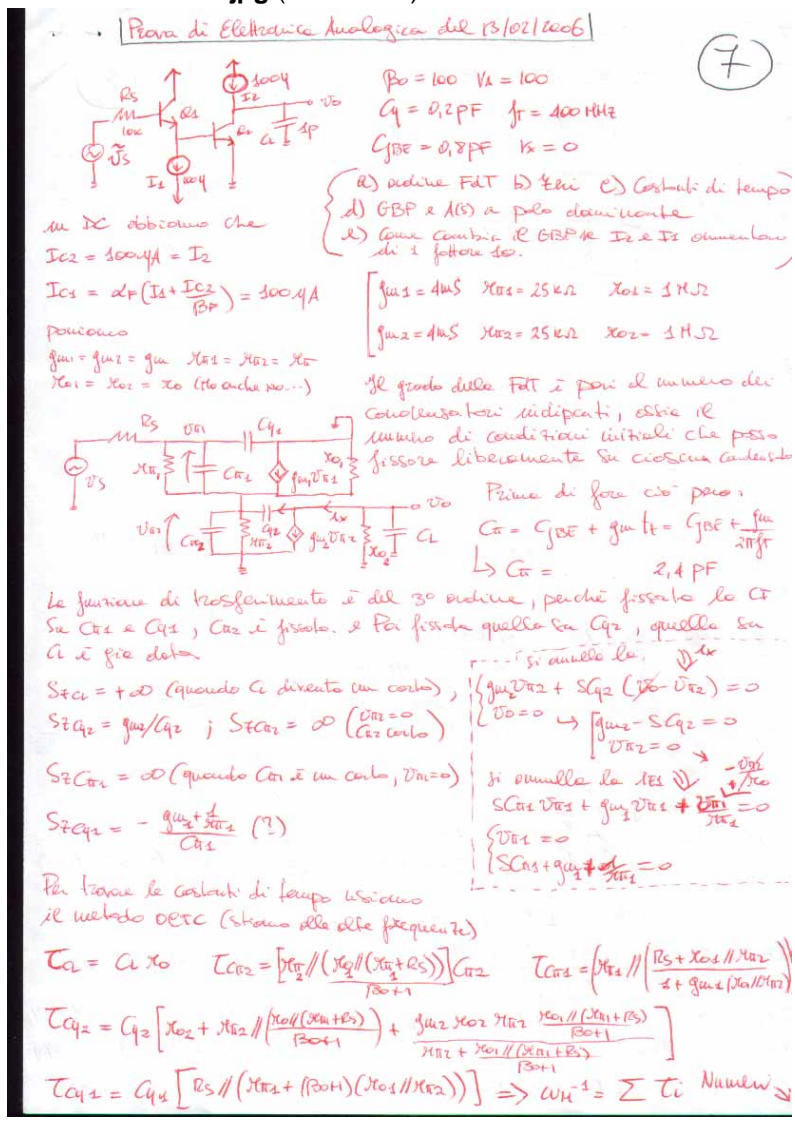 Prova di Elettronica Analogica del 13/02/2006
7
Rs
10K
Q1
I1
100μ
100μ
I2
Q2
vo
CL
1p
β0 = 100 VA = 100
Cμ = 0,2pF fT = 400 MHz
CJBE = 0,8pF rx = 0
a) ordine FdT b) zeri c) Costanti di tempo
d) GBP e A(s) a polo dominante
e) Come cambia il GBP se I2 e I1 aumentano
di 1 fattore 10.
in DC abbiamo che
IC2 = 100μA = I2
IC1 = αF(I1 + IC2/βF) = 100μA
poniamo
gm1 = gm2 = gm rπ1 = rπ2 = rπ
ro1 = ro2 = ro
gm1 = 4mS rπ1 = 25kΩ ro1 = 1MΩ
gm2 = 4mS rπ2 = 25kΩ ro2 = 1MΩ
Il grado della FdT è pari al numero dei
condensatori indipendenti, ossia il
numero di condizioni iniziali che posso
fissare liberamente su ciascun condensatore
Rs
vπ1
Cμ1
vs
rπ1
Cπ1
gm1vπ1
ro1
vπ2
Cπ2
rπ2
Cμ2
gm2vπ2
ix
ro2
vo
CL
Prima di fare ciò però:
Cπ = CJBE + gm tt = CJBE + gm/2πfT
Cπ = 2,4 pF
La funzione di trasferimento è del 3° ordine, perché fissata la CI
su Cπ1 e Cμ1, Cπ2 è fissato. e Poi fissata quella su Cμ2, quella su
CL è già data
SzCL = +∞ (quando CL diventa un corto),
SzCμ2 = gm2/Cμ2 ; SzCπ2 = ∞ (vπ2=0 Cπ2 corto)
SzCπ1 = ∞ (quando Cπ1 è un corto, vπ1=0)
SzCμ1 = - (gm1 + 1/rπ1)/Cπ1 (?)
si annulla la ix
gm2vπ2 + SCμ2 (vo - vπ2) = 0
vo = 0
gm2 - SCμ2 = 0
vπ2 = 0
si annulla la
SCπ1 vπ1 + gm1vπ1 + vπ1/rπ1 = 0
vπ1 = 0
SCπ1 + gm1 + 1/rπ1 = 0
Per trovare le costanti di tempo usiamo
il metodo OCTC (stiamo alle alte frequenze)
τCL = CL ro τCπ2 = [rπ2//(ro1//(rπ1+Rs))/(β0+1)]Cπ2 τCπ1 = (rπ1//(Rs + ro1//rπ2)/(1 + gm1(ro1//rπ2)))
τCμ2 = Cμ2 [ro2 + rπ2//(ro1//(rπ1+Rs)/(β0+1)) + gm2 ro2 rπ2 (ro1//(rπ1+Rs)/(β0+1))/(rπ2 + ro1//(rπ1+Rs)/(β0+1))]
τCμ1 = Cμ1 [Rs//(rπ1 + (β0+1)(ro1//rπ2))] => ωH⁻¹ = Σ τi Numeri